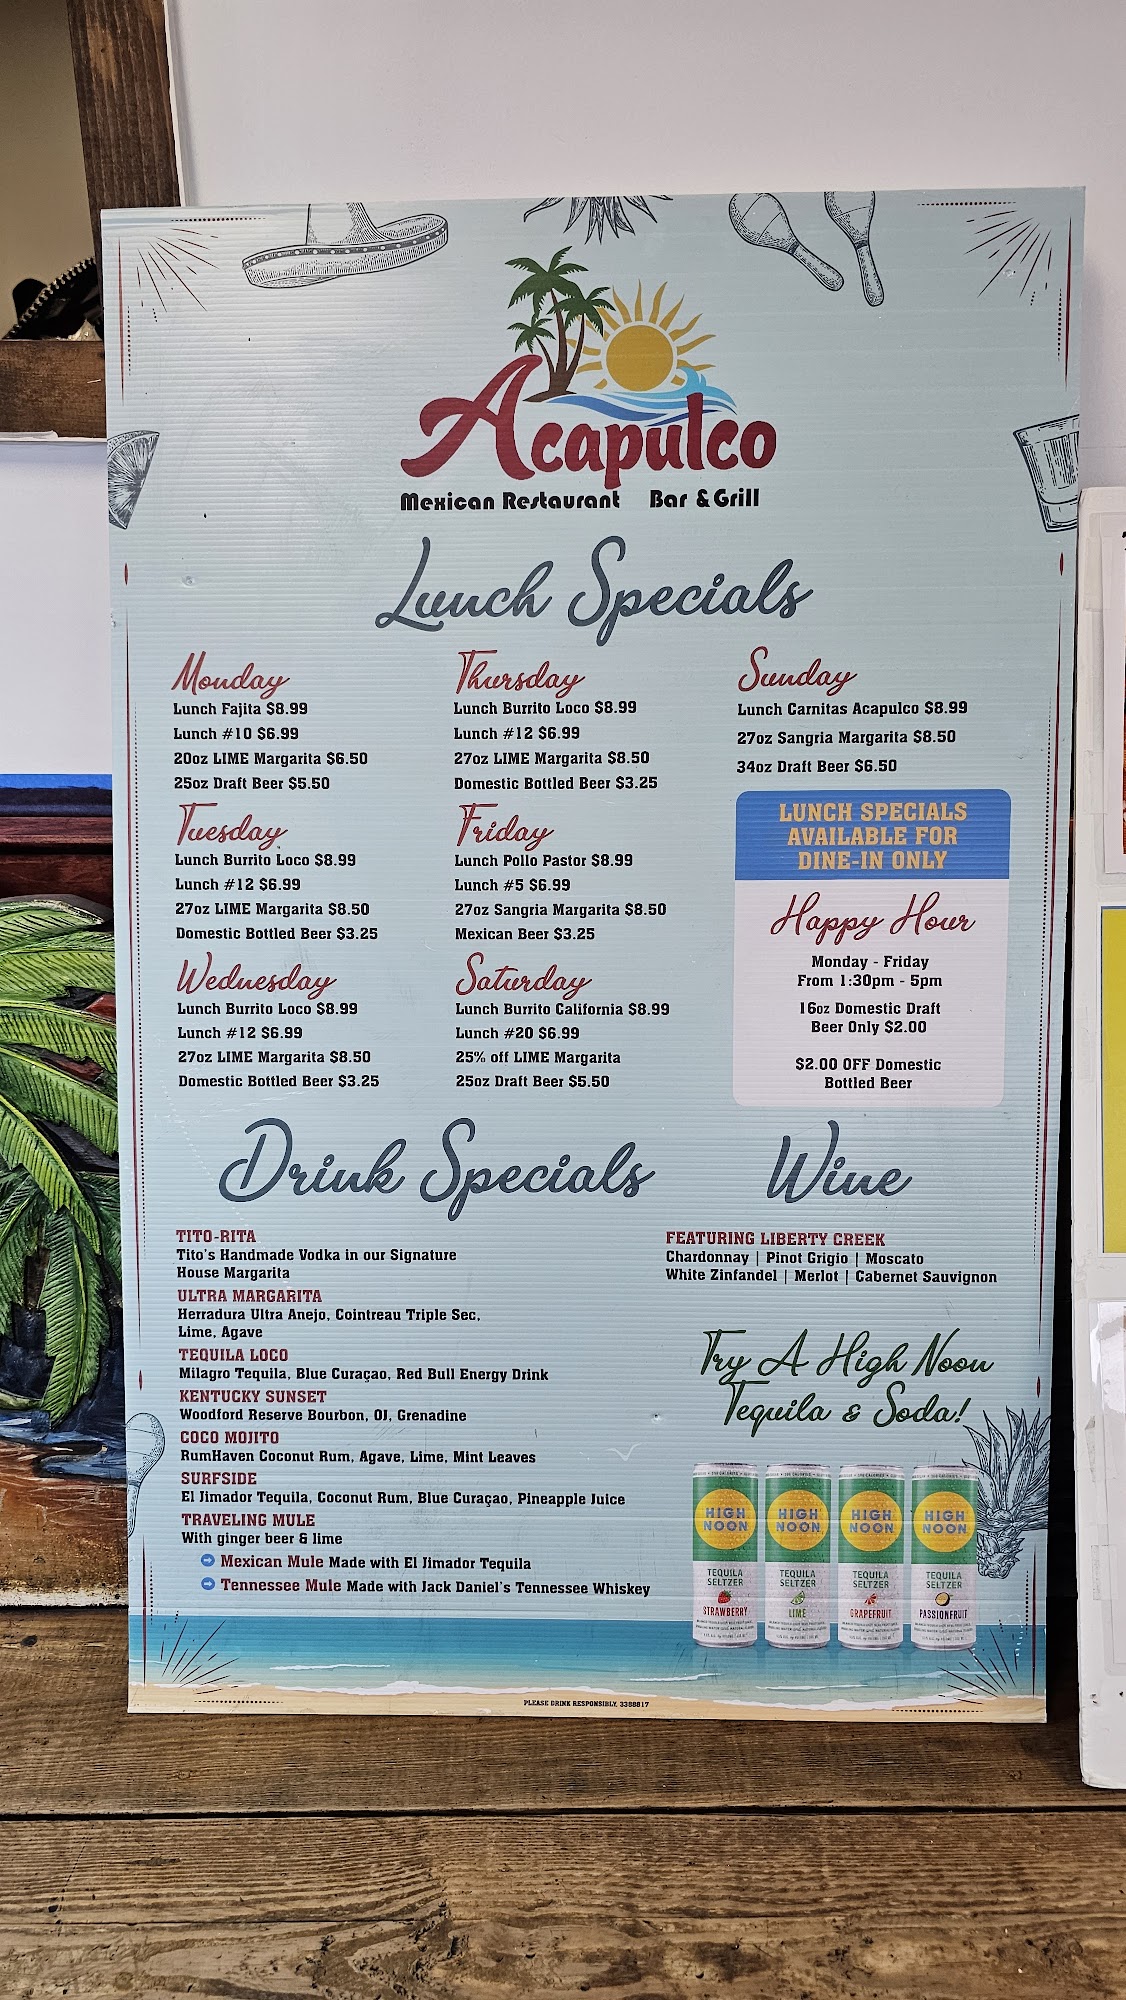 Acapulco
Mexican Restaurant Bar & Grill
Lunch Specials
Monday
Lunch Fajita $8.99
Lunch #10 $6.99
20oz LIME Margarita $6.50
25oz Draft Beer $5.50
Tuesday
Lunch Burrito Loco $8.99
Lunch #12 $6.99
27oz LIME Margarita $8.50
Domestic Bottled Beer $3.25
Wednesday
Lunch Burrito Loco $8.99
Lunch #12 $6.99
27oz LIME Margarita $8.50
Domestic Bottled Beer $3.25
Thursday
Lunch Burrito Loco $8.99
Lunch #12 $6.99
27oz LIME Margarita $8.50
Domestic Bottled Beer $3.25
Friday
Lunch Pollo Pastor $8.99
Lunch #5 $6.99
27oz Sangria Margarita $8.50
Mexican Beer $3.25
Saturday
Lunch Burrito California $8.99
Lunch #20 $6.99
25% off LIME Margarita
25oz Draft Beer $5.50
Sunday
Lunch Carnitas Acapulco $8.99
27oz Sangria Margarita $8.50
34oz Draft Beer $6.50
LUNCH SPECIALS
AVAILABLE FOR
DINE-IN ONLY
Happy Hour
Monday - Friday
From 1:30pm - 5pm
16oz Domestic Draft
Beer Only $2.00
$2.00 OFF Domestic
Bottled Beer
Drink Specials
TITO-RITA
Tito's Handmade Vodka in our Signature
House Margarita
ULTRA MARGARITA
Herradura Ultra Anejo, Cointreau Triple Sec,
Lime, Agave
TEQUILA LOCO
Milagro Tequila, Blue Curaçao, Red Bull Energy Drink
KENTUCKY SUNSET
Woodford Reserve Bourbon, OJ, Grenadine
COCO MOJITO
RumHaven Coconut Rum, Agave, Lime, Mint Leaves
SURFSIDE
El Jimador Tequila, Coconut Rum, Blue Curaçao, Pineapple Juice
TRAVELING MULE
With ginger beer & lime
Mexican Mule Made with El Jimador Tequila
Tennessee Mule Made with Jack Daniel's Tennessee Whiskey
Wine
FEATURING LIBERTY CREEK
Chardonnay | Pinot Grigio | Moscato
White Zinfandel | Merlot | Cabernet Sauvignon
Try A High Noon
Tequila & Soda!
HIGH NOON
TEQUILA SELTZER
STRAWBERRY
HIGH NOON
TEQUILA SELTZER
LIME
HIGH NOON
TEQUILA SELTZER
GRAPEFRUIT
HIGH NOON
TEQUILA SELTZER
PASSIONFRUIT
PLEASE DRINK RESPONSIBLY, 3388817